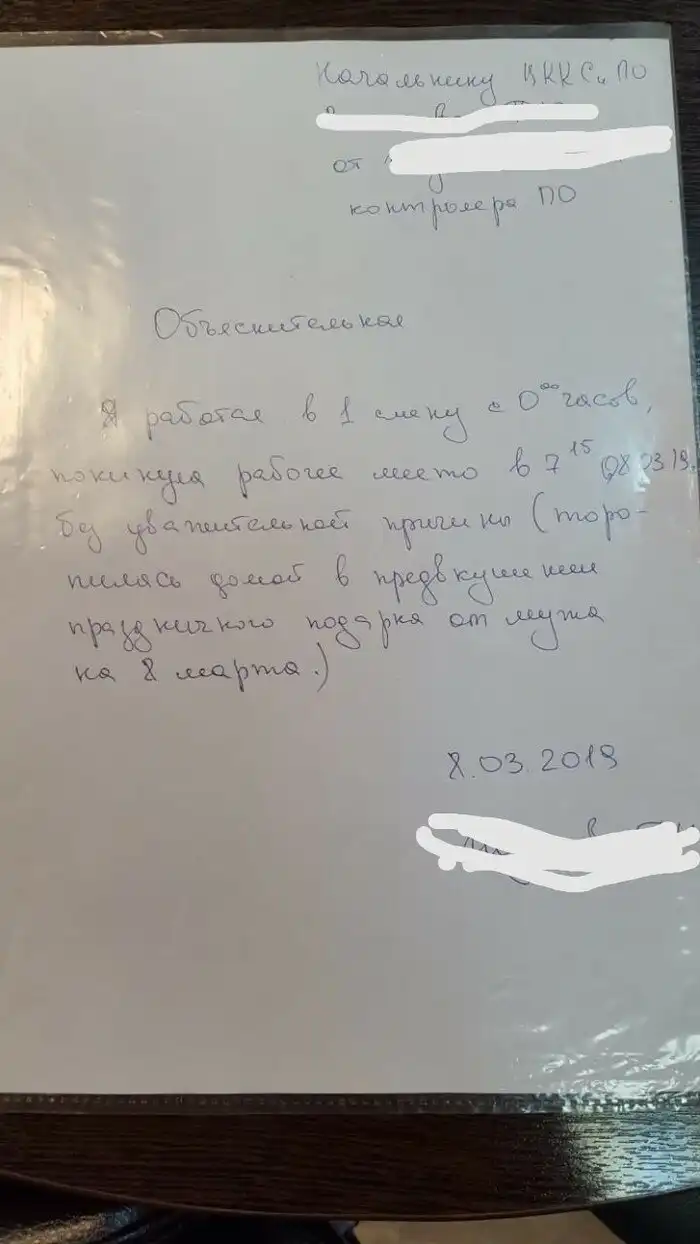 Начальнику ЦККС и ПО
от
контролера ПО
Объяснительная
Я работая в 1 смену с 0⁰⁰ часов,
покинула рабочее место в 7¹⁵ 08.03.19.
без уважительной причины (торо-
пилась домой в предвкушении
праздничного подарка от мужа
на 8 марта.)
8.03.2019